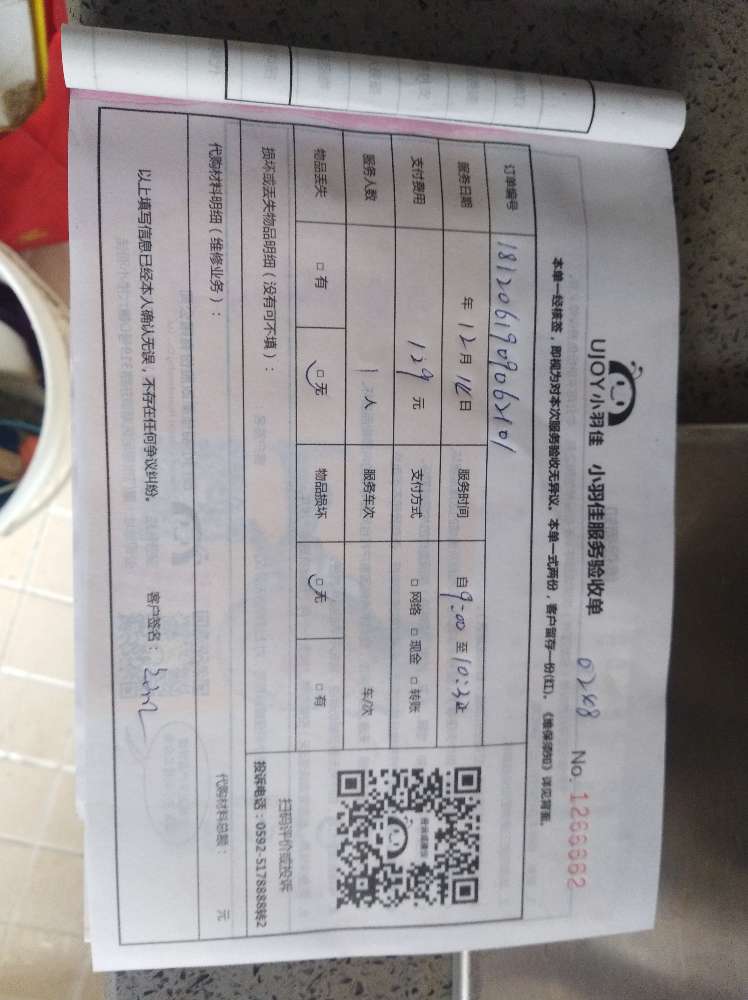 UJOY小羽佳 小羽佳服务验收单 0248 No. 1266662
本单一经核签，即视为对本次服务验收无异议。本单一式两份，客户留存一份(红)。《维保须知》详见背面。
订单编号 1812061909062101
服务日期 年 12月 日 服务时间 自 9:00 至 止
支付费用 129 元 支付方式 □ 网络 □ 现金 □ 转账
服务人数 1 人 服务车次 车/次
物品丢失 □ 有 □ 无 物品损坏 □ 无 □ 有
损坏或丢失物品明细（没有可不填）：
扫码评价或投诉
投诉电话：0592-5178888转2
代购材料明细（维修业务）： 代购材料总额： 元
以上填写信息已经本人确认无误，不存在任何争议纠纷。 客户签名：